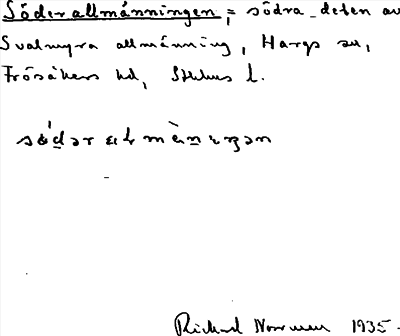 Söderallmänningen, = södra delen av
Svalmyra allmänning, Hargs sn,
Frösåkers hd, Sthlms l.
Richard Norrman 1935.